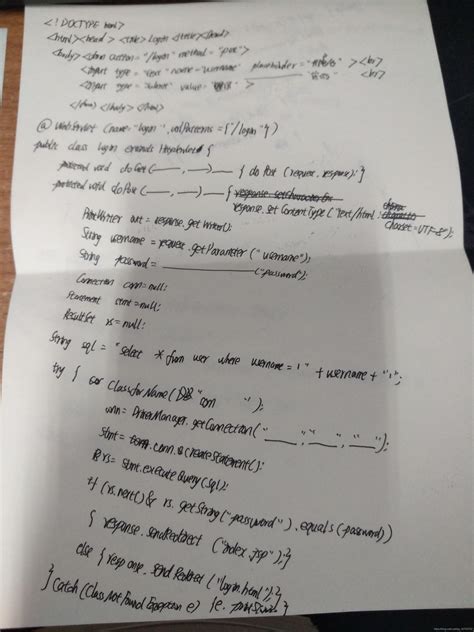 <!DOCTYPE html>
<html><head><title>Login<title></head>
<body><form action="/login" method="post">
<input type="text" name="username" placeholder=" "><br>
<input type="submit" value=" <br>
</form></body></html>
@WebServlet(name="login", urlPatterns={"/login"})
public class login extends HttpServlet {
protected void doGet(——,——)—— { doPost(request, response);}
protected void doPost(——,——)—— {
response.setContentType("text/html;
charset=UTF-8");
PrintWriter out = response.getWriter();
String username = request.getParameter("username");
String password = ("password");
Connection conn=null;
Statement stmt=null;
ResultSet rs=null;
String sql = "select * from user where username='" + username + "'";
try { Class.forName( "com ");
conn= DriverManager.getConnection("——","——","——");
stmt = conn.createStatement();
rs= stmt.executeQuery(sql);
if (rs.next() & rs.getString("password").equals(password))
{ response.sendRedirect ("index.jsp");}
else { response.sendRedirect("login.html");}
} catch(ClassNotFoundException e) {e. }